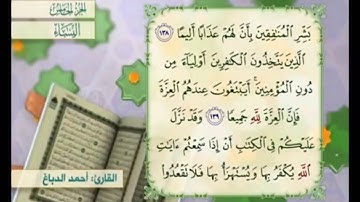 الجزء الخامس
النساء
بَشِّرِ الْمُنَافِقِينَ بِأَنَّ لَهُمْ عَذَابًا أَلِيمًا ١٣٨
الَّذِينَ يَتَّخِذُونَ الْكَافِرِينَ أَوْلِيَاءَ مِن
دُونِ الْمُؤْمِنِينَ ۚ أَيَبْتَغُونَ عِندَهُمُ الْعِزَّةَ
فَإِنَّ الْعِزَّةَ لِلَّهِ جَمِيعًا ١٣٩ وَقَدْ نَزَّلَ
عَلَيْكُمْ فِي الْكِتَابِ أَنْ إِذَا سَمِعْتُمْ آيَاتِ
اللَّهِ يُكْفَرُ بِهَا وَيُسْتَهْزَأُ بِهَا فَلَا تَقْعُدُوا
القارئ: أحمد الدباغ